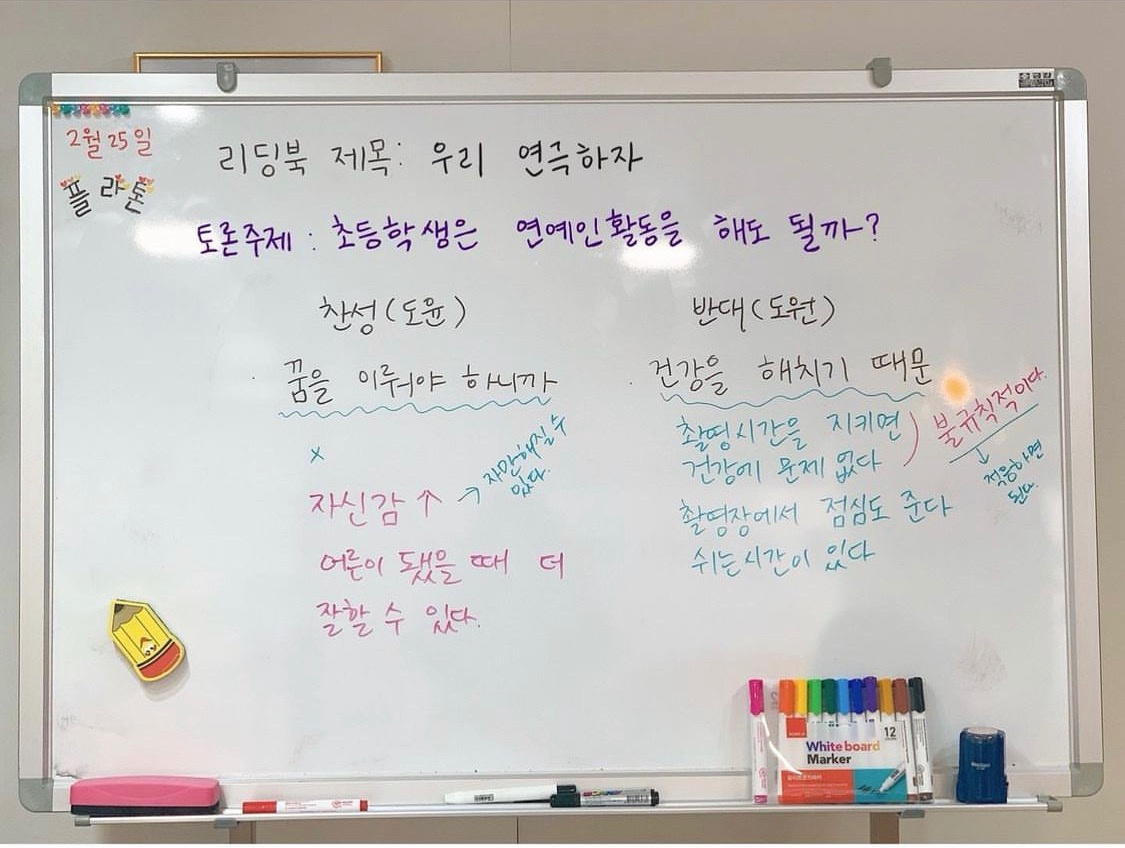 2월 25일
플라톤
리딩북 제목: 우리 연극하자
토론주제 : 초등학생은 연예인활동을 해도 될까?
찬성(도윤)
· 꿈을 이뤄야 하니까
x
자신감 ↑
→ 자만해질 수
있다.
어른이 됐을 때 더
잘할 수 있다.
반대(도원)
· 건강을 해치기 때문
촬영시간을 지키면
건강에 문제 없다
불규칙적이다.
↓ 적응하면
된다.
촬영장에서 점심도 준다
쉬는시간이 있다
12
White board
Marker